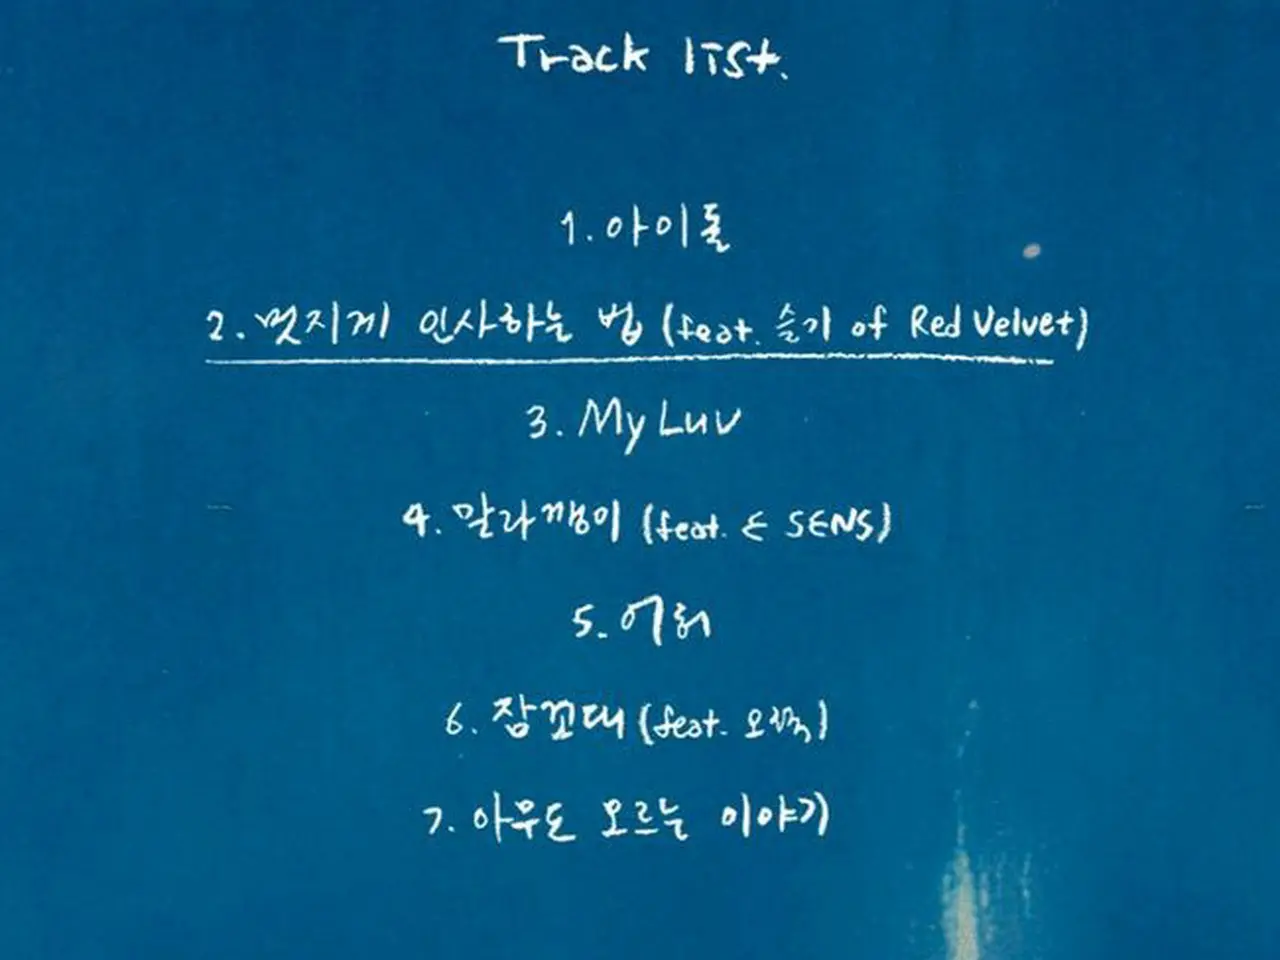 Track list.
1. 아이돌
2. 멋지게 인사하는 법 (feat. 슬기 of Red Velvet)
3. My Luv
4. 말라깽이 (feat. E SENS)
5. 어허
6. 잠꼬대 (feat. 오혁)
7. 아무도 모르는 이야기